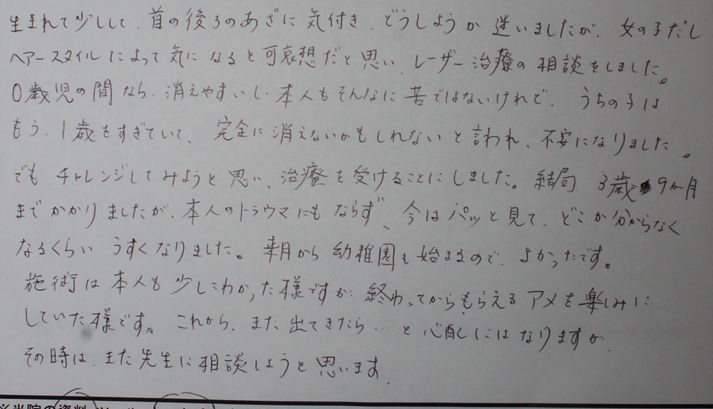 生まれて少しして、首の後ろのあざに気付き、どうしようか迷いましたが、女の子だし
ヘアースタイルによって気になると可哀想だと思い、レーザー治療の相談をしました。
0歳児の間なら、消えやすいし、本人もそんなに苦ではないけれど、うちの子は
もう、1歳もすぎていて、完全に消えないかもしれないと言われ、不安になりました。
でもチャレンジしてみようと思い、治療を受けることにしました。結局、3歳9ヶ月
までかかりましたが、本人のトラウマにもならず、今はパッと見て、どこか分からなく
なるくらいうすくなりました。来月から幼稚園も始まるので、よかったです。
施術は本人も少しこわかった様ですが、終わってからもらえるアメを楽しみに
していた様です。これから、また出てきたら…と心配にはなりますが、
その時は、また先生に相談しようと思います。
※当院の資料